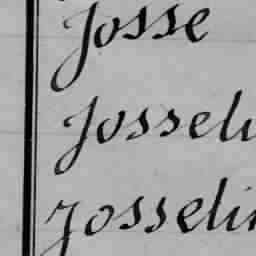 Josse
Josseli
Josselin